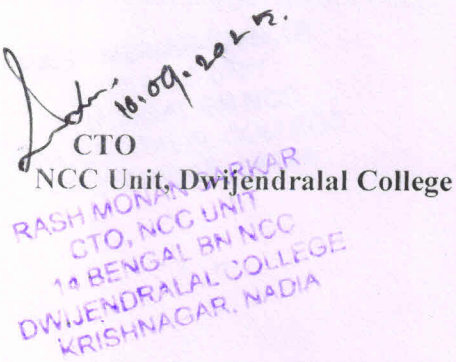 CTO
NCC Unit, Dwijendralal College
RASH MONAN SARKAR
CTO, NCC UNIT
14 BENGAL BN NCC
DWIJENDRALAL COLLEGE
KRISHNAGAR, NADIA